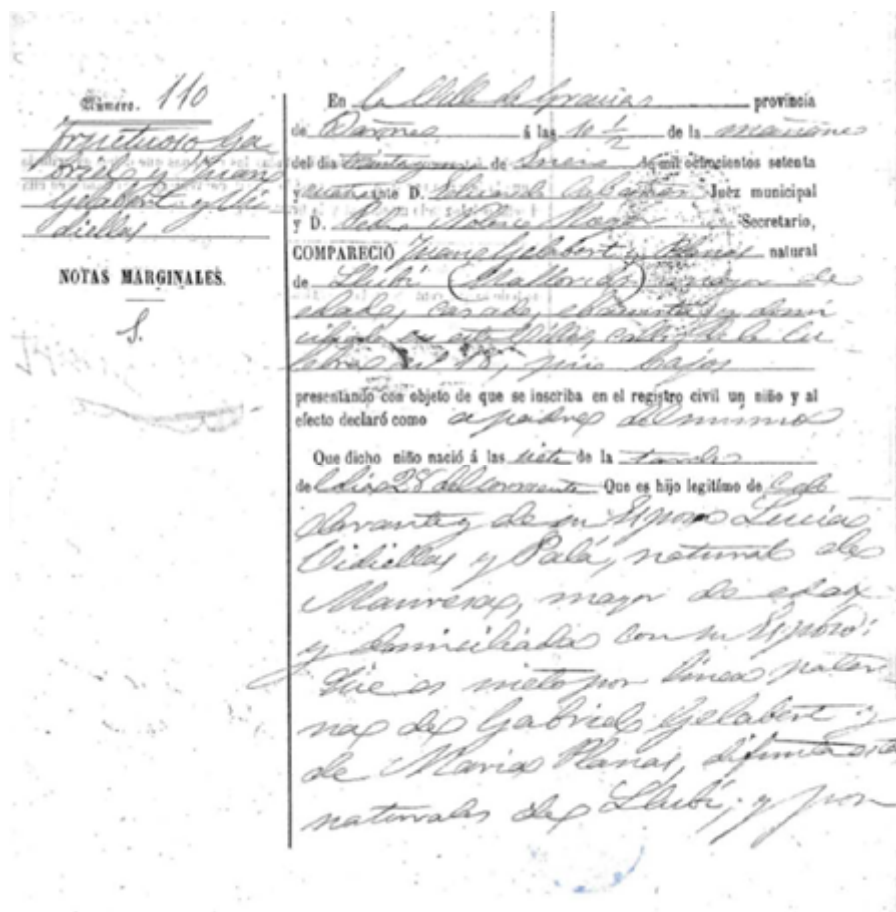 Número. 110
Fructuoso, Ga
briel y Juan
Gelabert y Vi
diellas
NOTAS MARGINALES.
S.
En la Villa de Gracia provincia
de Barna á las 10 ½ de la mañana
del dia treinta y un de Enero de mil ochocientos setenta
y ante D. Juez municipal
y D. Pedro Secretario,
COMPARECIÓ Juan Gelabert y Planas natural
de Llubí (Mallorca) mayor de
edad, casado, ebanista y domi
ciliado en esta Villa, calle de la Cu
lebra nº 18, piso bajos
presentando con objeto de que se inscriba en el registro civil un niño y al
efecto declaró como padre del mismo
Que dicho niño nació á las siete de la tarde
del dia 28 del corriente Que es hijo legítimo de
clarante y de su Esposa Lucia
Vidiellas y Palá, natural de
Manresa, mayor de edad
y domiciliada con su Esposo:
Que es nieto por linea pater
na de Gabriel Gelabert y
de Maria Planas, difunta
naturales de Llubí; y por